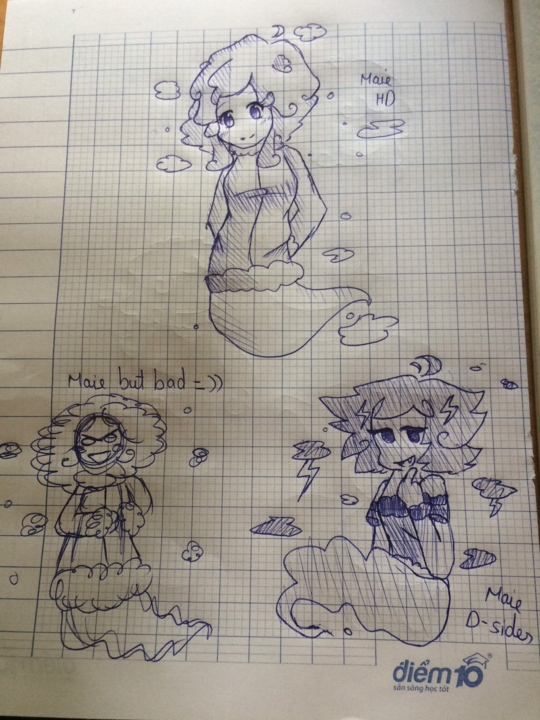 Maie
HD
Maie but bad =))
Maie
D-sides
điểm10
sẵn sàng học tốt